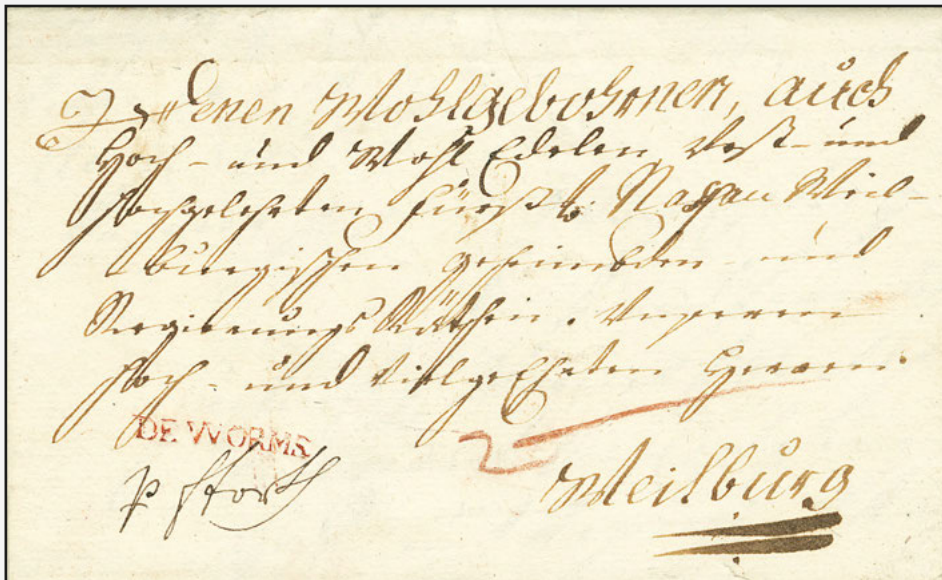 Denen Wohlgebohrnen, auch
Hoch- und Wohl Edelen, Vest- und
Hochgelehrten Fürstl. Nassau Weil-
burgischen geheimbden- und
Regierungs Räthen. Unseren
Hoch- und Vielgeehrten Herren.
DE WORMS
2
Weilburg